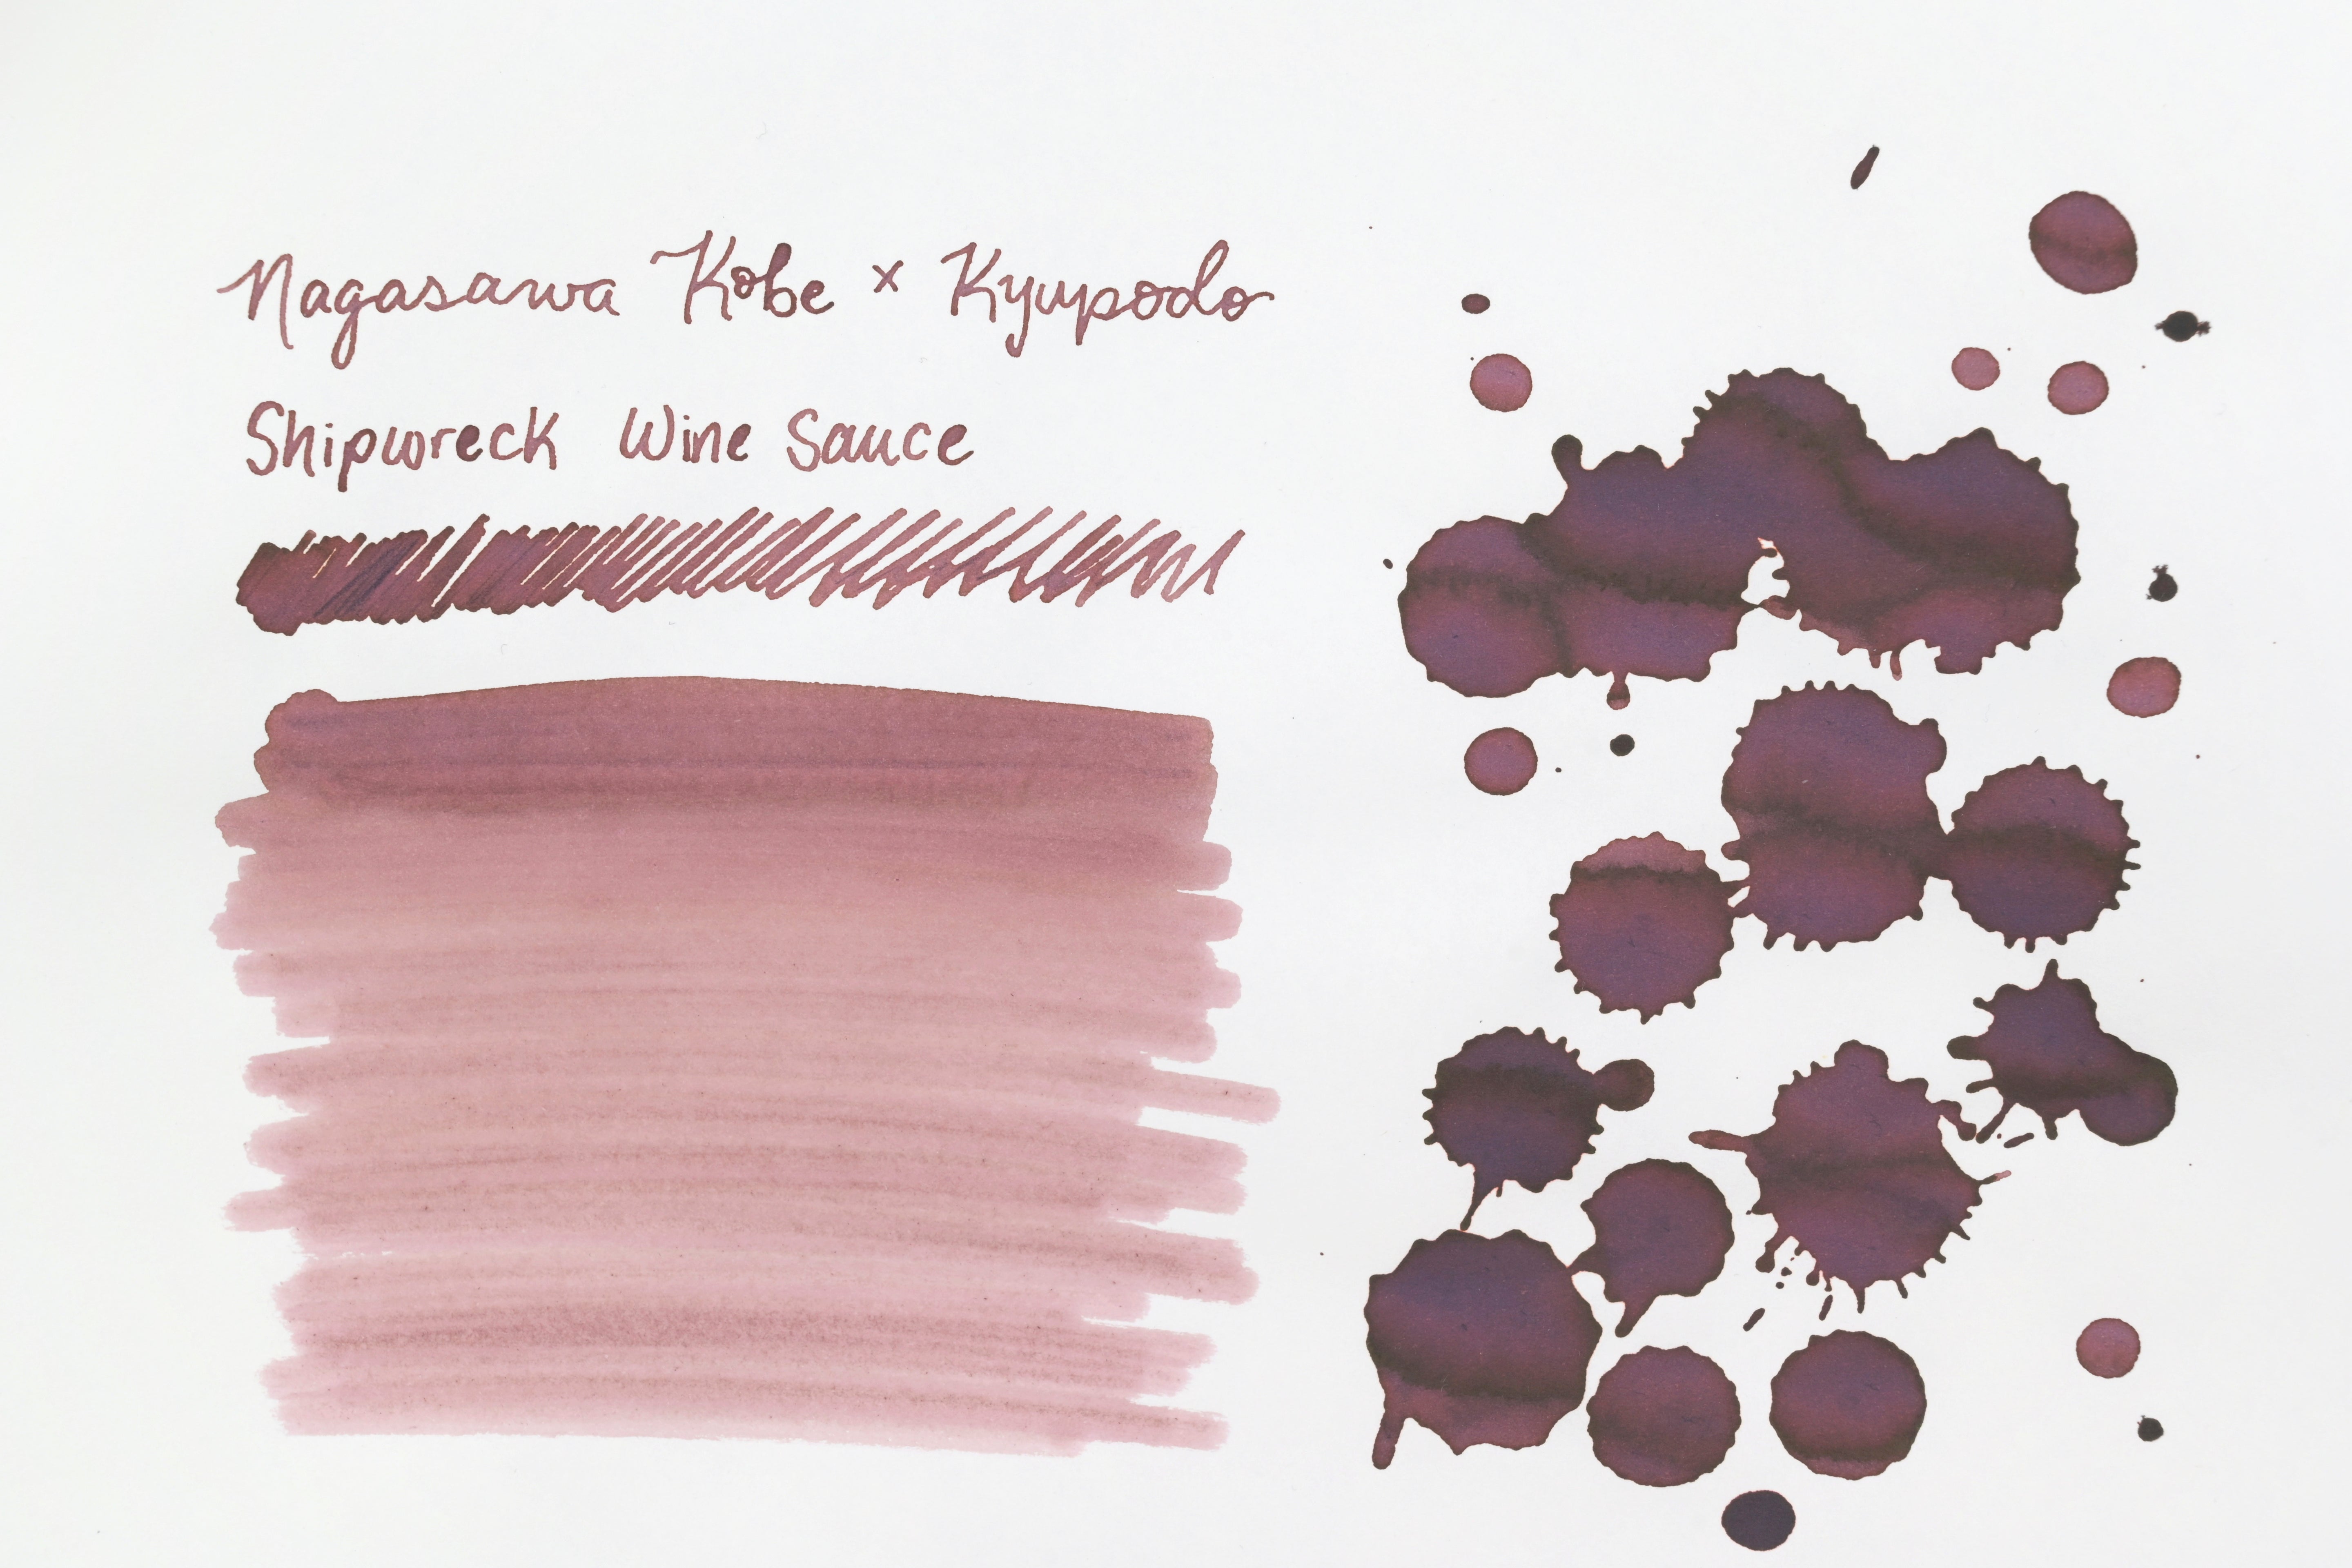 Nagasawa Kobe x Kyupodo
Shipwreck Wine Sauce